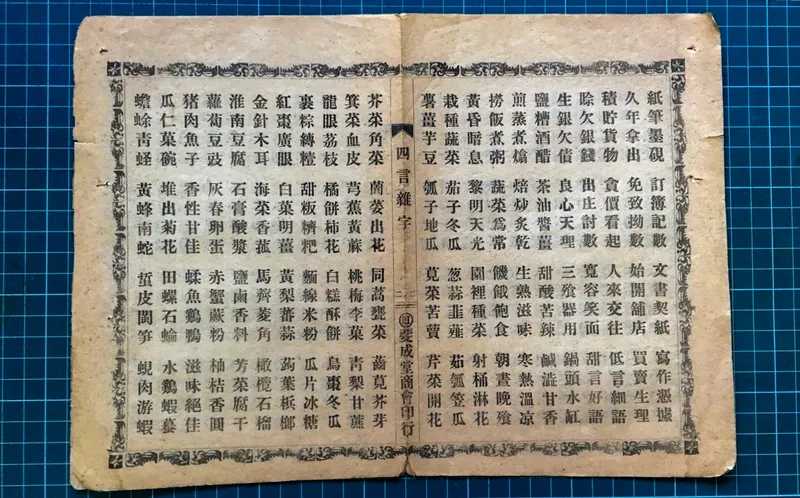 紙筆墨硯 訂簿記數 文書契紙 寫作憑據
久年拿出 免致拗數 始開鋪店 買賣生理
積貯貨物 貪價看起 人來交往 低言細語
賒欠銀錢 出庄討數 寬容笑面 甜言好語
生銀欠債 良心天理 三飧器用 鍋頭水缸
鹽糟酒醋 茶油醬薑 甜酸苦辣 鹹澁甘香
煎蒸煮熻 焙炒炙乾 生熟滋味 寒熱溫凉
撈飯煮粥 蔬菜爲常 饑餓飽食 朝晝晚飧
黃昏暗息 黎明天光 園裡種菜 射桶淋花
栽種蔬菜 茄子冬瓜 葱蒜韭薤 茹瓠笠瓜
薯薑芋豆 瓠子地瓜 莧菜苦蕒 芹菜開花
四言雜字 二 斐成堂商會印行
芥菜角菜 荽出花 同蒿甕菜 莧芥芽
箕菜血皮 芎蕉黃蔴 桃梅李菓 青梨甘蔗
龍眼荔枝 橘餅柿花 白糕酥餅 烏棗冬瓜
裹粽縛 甜粄粑 麵線米粉 瓜片冰糖
紅棗廣眼 白菓明薑 黃梨蕃蒜 蒟葉檳榔
金針木耳 海菜香菰 馬薺菱角 橄欖石榴
淮南豆腐 石膏酸漿 鹽鹵香料 芳菜腐干
蘿蔔豆豉 灰春卵蛋 赤蟹蕨粉 柚桔香圓
猪肉魚子 香牲甘佳 魚鷄鴨 滋味絕佳
瓜仁菓碗 堆出菊花 田螺石蜦 水鷄蝦蟇
蟾蜍靑 黃蜂南蛇 蜇皮閩笋 蜆肉游蝦